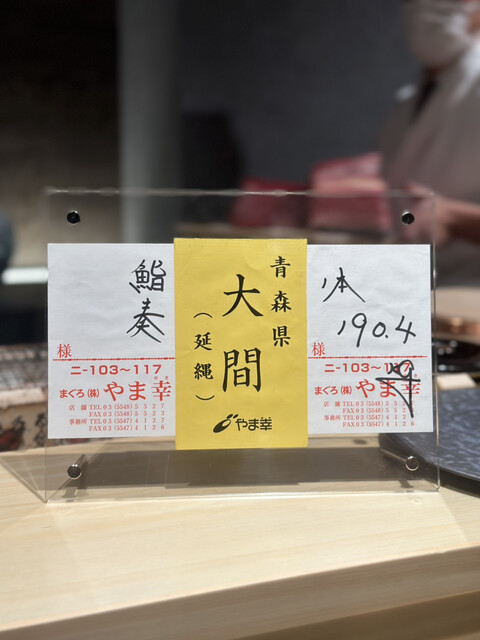 鮨
奏
様
ニ-103~117
まぐろ(株)やま幸
店舗 TEL03(5548)5527
FAX03(5548)5523
事務所 TEL03(5547)4127
FAX03(5547)4126
青森県
大間
(延縄)
やま幸
本
190.4
様
ニ-103~117
まぐろ(株)やま幸
店舗 TEL03(5548)552
FAX03(5548)552
事務所 TEL03(5547)412
FAX03(5547)4126